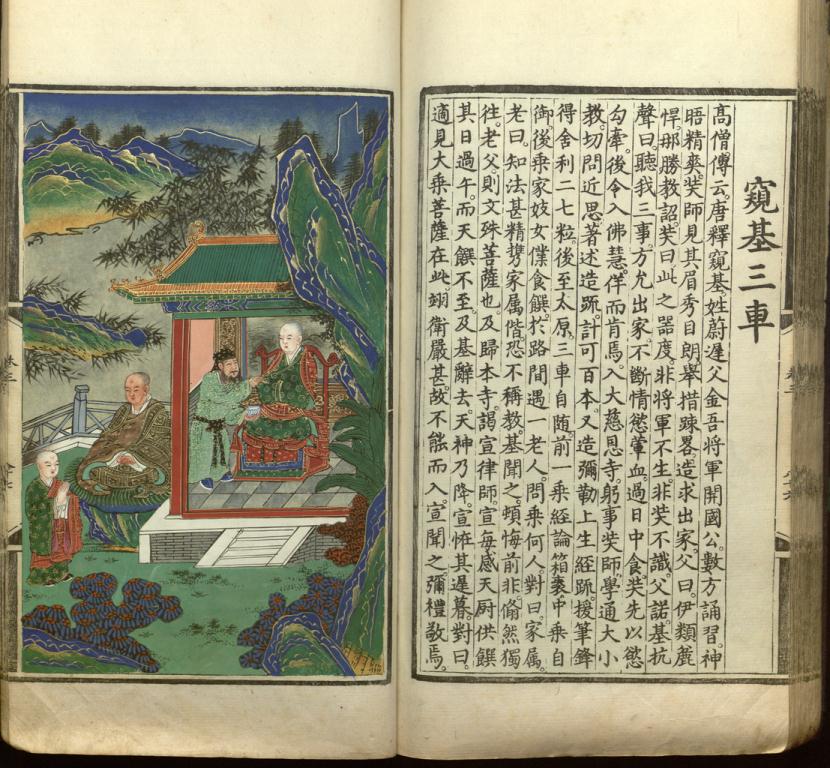 窺基三車
高僧傳云。唐釋窺基。姓蔚遲。父金吾將軍開國公。數方誦習。神
晤精爽。奘師見其眉秀目朗。舉措踈畧。造求出家。父曰。伊類麄
悍。那勝教詔。奘曰。此之器度。非將軍不生。非奘不識。父諾。基抗
聲曰。聽我三事。方允出家。不斷情慾葷血。過日中食。奘先以慾
勾牽。後令入佛慧。佯而肯焉。入大慈恩寺。躬事奘師。學通大小
教。切問近思。著述造䟽。計可百本。又造彌勒上生經䟽。援筆鋒
得舍利二七粒。後至太原。三車自随。前一乘經論箱袠。中乘自
御。後乘家妓女僕食饌。於路間遇一老人。問乘何人。對曰。家属。
老曰。知法甚精。攜家属偕。恐不稱教。基聞之。頓悔前非。翛然獨
往。老父則文殊菩薩也。及歸本寺。謁宣律師。宣每感天厨供饌
其日過午。而天饌不至。及基辭去。天神乃降。宣恠其遅暮。對曰。
適見大乘菩薩在此。翊衛嚴甚。故不能而入。宣聞之。彌禮敬焉。